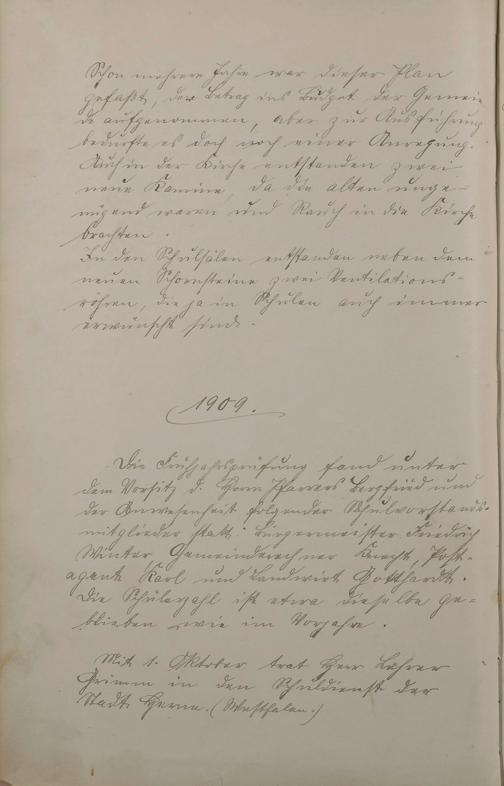 Schon mehrere Jahre war dieser Plan
gefaßt, der Betrag ins Budget der Gemein
de aufgenommen, aber zur Ausführung
bedurfte es doch noch einer Anregung.
Auch in der Kirche entstanden zwei
neue Kamine, da die alten unge-
nügend waren und Rauch in die Kirche
brachten.
In den Schulsälen entstanden neben dem
neuen Schornsteine zwei Ventilations-
röhren, die ja in Schulen auch immer
erwünscht sind.
1909.
Die Frühjahrsprüfung fand unter
dem Vorsitz d. Herrn Pfarrers Bergfried und
der Anwesenheit folgender Schulvorstands-
mitglieder statt: Bürgermeister Friedrich
Winter, Gemeinderechner Knecht, Post-
agent Karl und Landwirt Gotthardt.
Die Schülerzahl ist etwa dieselbe ge-
blieben wie im Vorjahre.
Mit 1. Oktober trat Herr Lehrer
Grimm in den Schuldienst der
Stadt Herne. (Westfalen.)